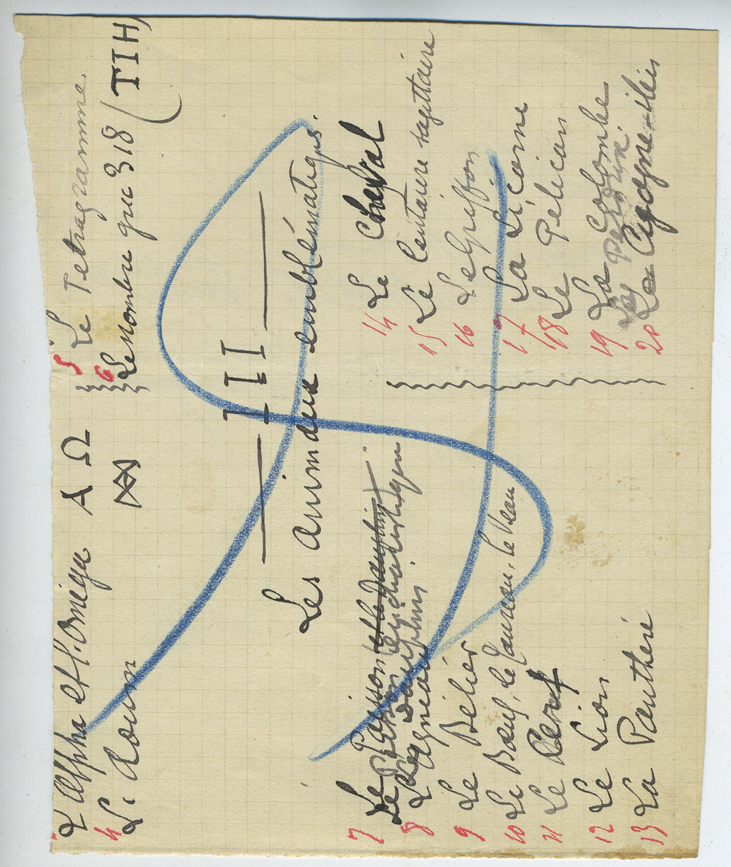 L'Alpha et l'Oméga A Ω
4 L'Aoum
5 Le Tetragramme.
6 Le Nombre grec 318 (TIH)
III
Les animaux emblématiques.
7 Le Poisson et le Dauphin
Le Poisson eucharistique
Le Dauphin
8 L'Agneau
9 Le Belier
10 Le Bœuf, le Taureau, le Veau
11 Le Cerf
12 Le Lion
13 La Panthère
14 Le Cheval
15 Le Centaure sagittaire
16 Le Griffon
17 La Licorne
18 Le Pélican
19 La Colombe
La Perdrix
20 La Cigogne-Ibis